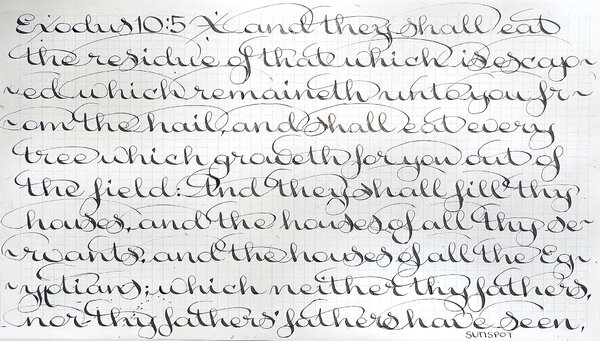 Exodus 10:5 X and they shall eat
the residue of that which is escap~
~ed which remaineth unto you fr~
~om the hail, and shall eat every
tree which groweth for you out of
the field: And they shall fill thy
houses, and the houses of all thy se~
~rvants, and the houses of all the Eg~
~yptians; which neither thy fathers,
nor thy fathers' fathers have seen,
SUNSPOT